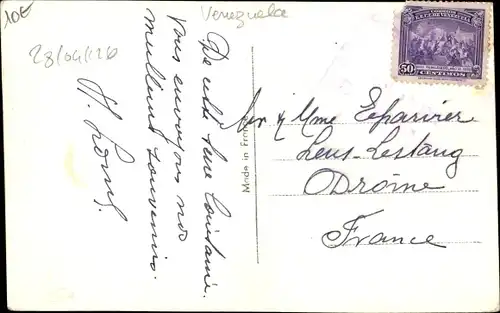 10€
Venezuela
28/04/26
De cette terre lointaine
vous envoyons nos
meilleurs souvenirs.
Made in France
50
CENTIMOS
E.E.U.U. DE VENEZUELA
Mr & Mme Eparvier
Lens-Lestang
Drôme
France